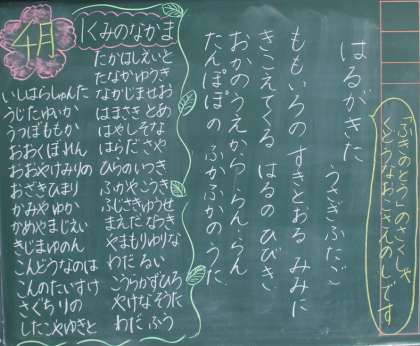 「ふきのとう」のさくしゃ
くどうなおこさんのしです
はるがきた
うさぎふたご
ももいろの すきとおる みみに
きこえてくる はるの ひびき
おかのうえから らん・らん
たんぽぽの ふかふかの うた
4月
1くみのなかま
たかはしえいと
たなかゆうき
なかじませお
はまさきとめ
はやしそな
はらださや
ひらのいつき
ふかやこうき
ふじきゆうせ
まえだなつき
やまもりゆりな
わだるい
こうらかずひろ
やけなぞうた
わだふう
いしはらしゅんた
うじたゆいか
うつぼももか
おおくぼれん
おおやけみりの
おざきひまり
かみやゆか
かめやまじえい
きじまゆのん
こんどうなのは
こんのたいすけ
さぐちりの
したこやゆきと